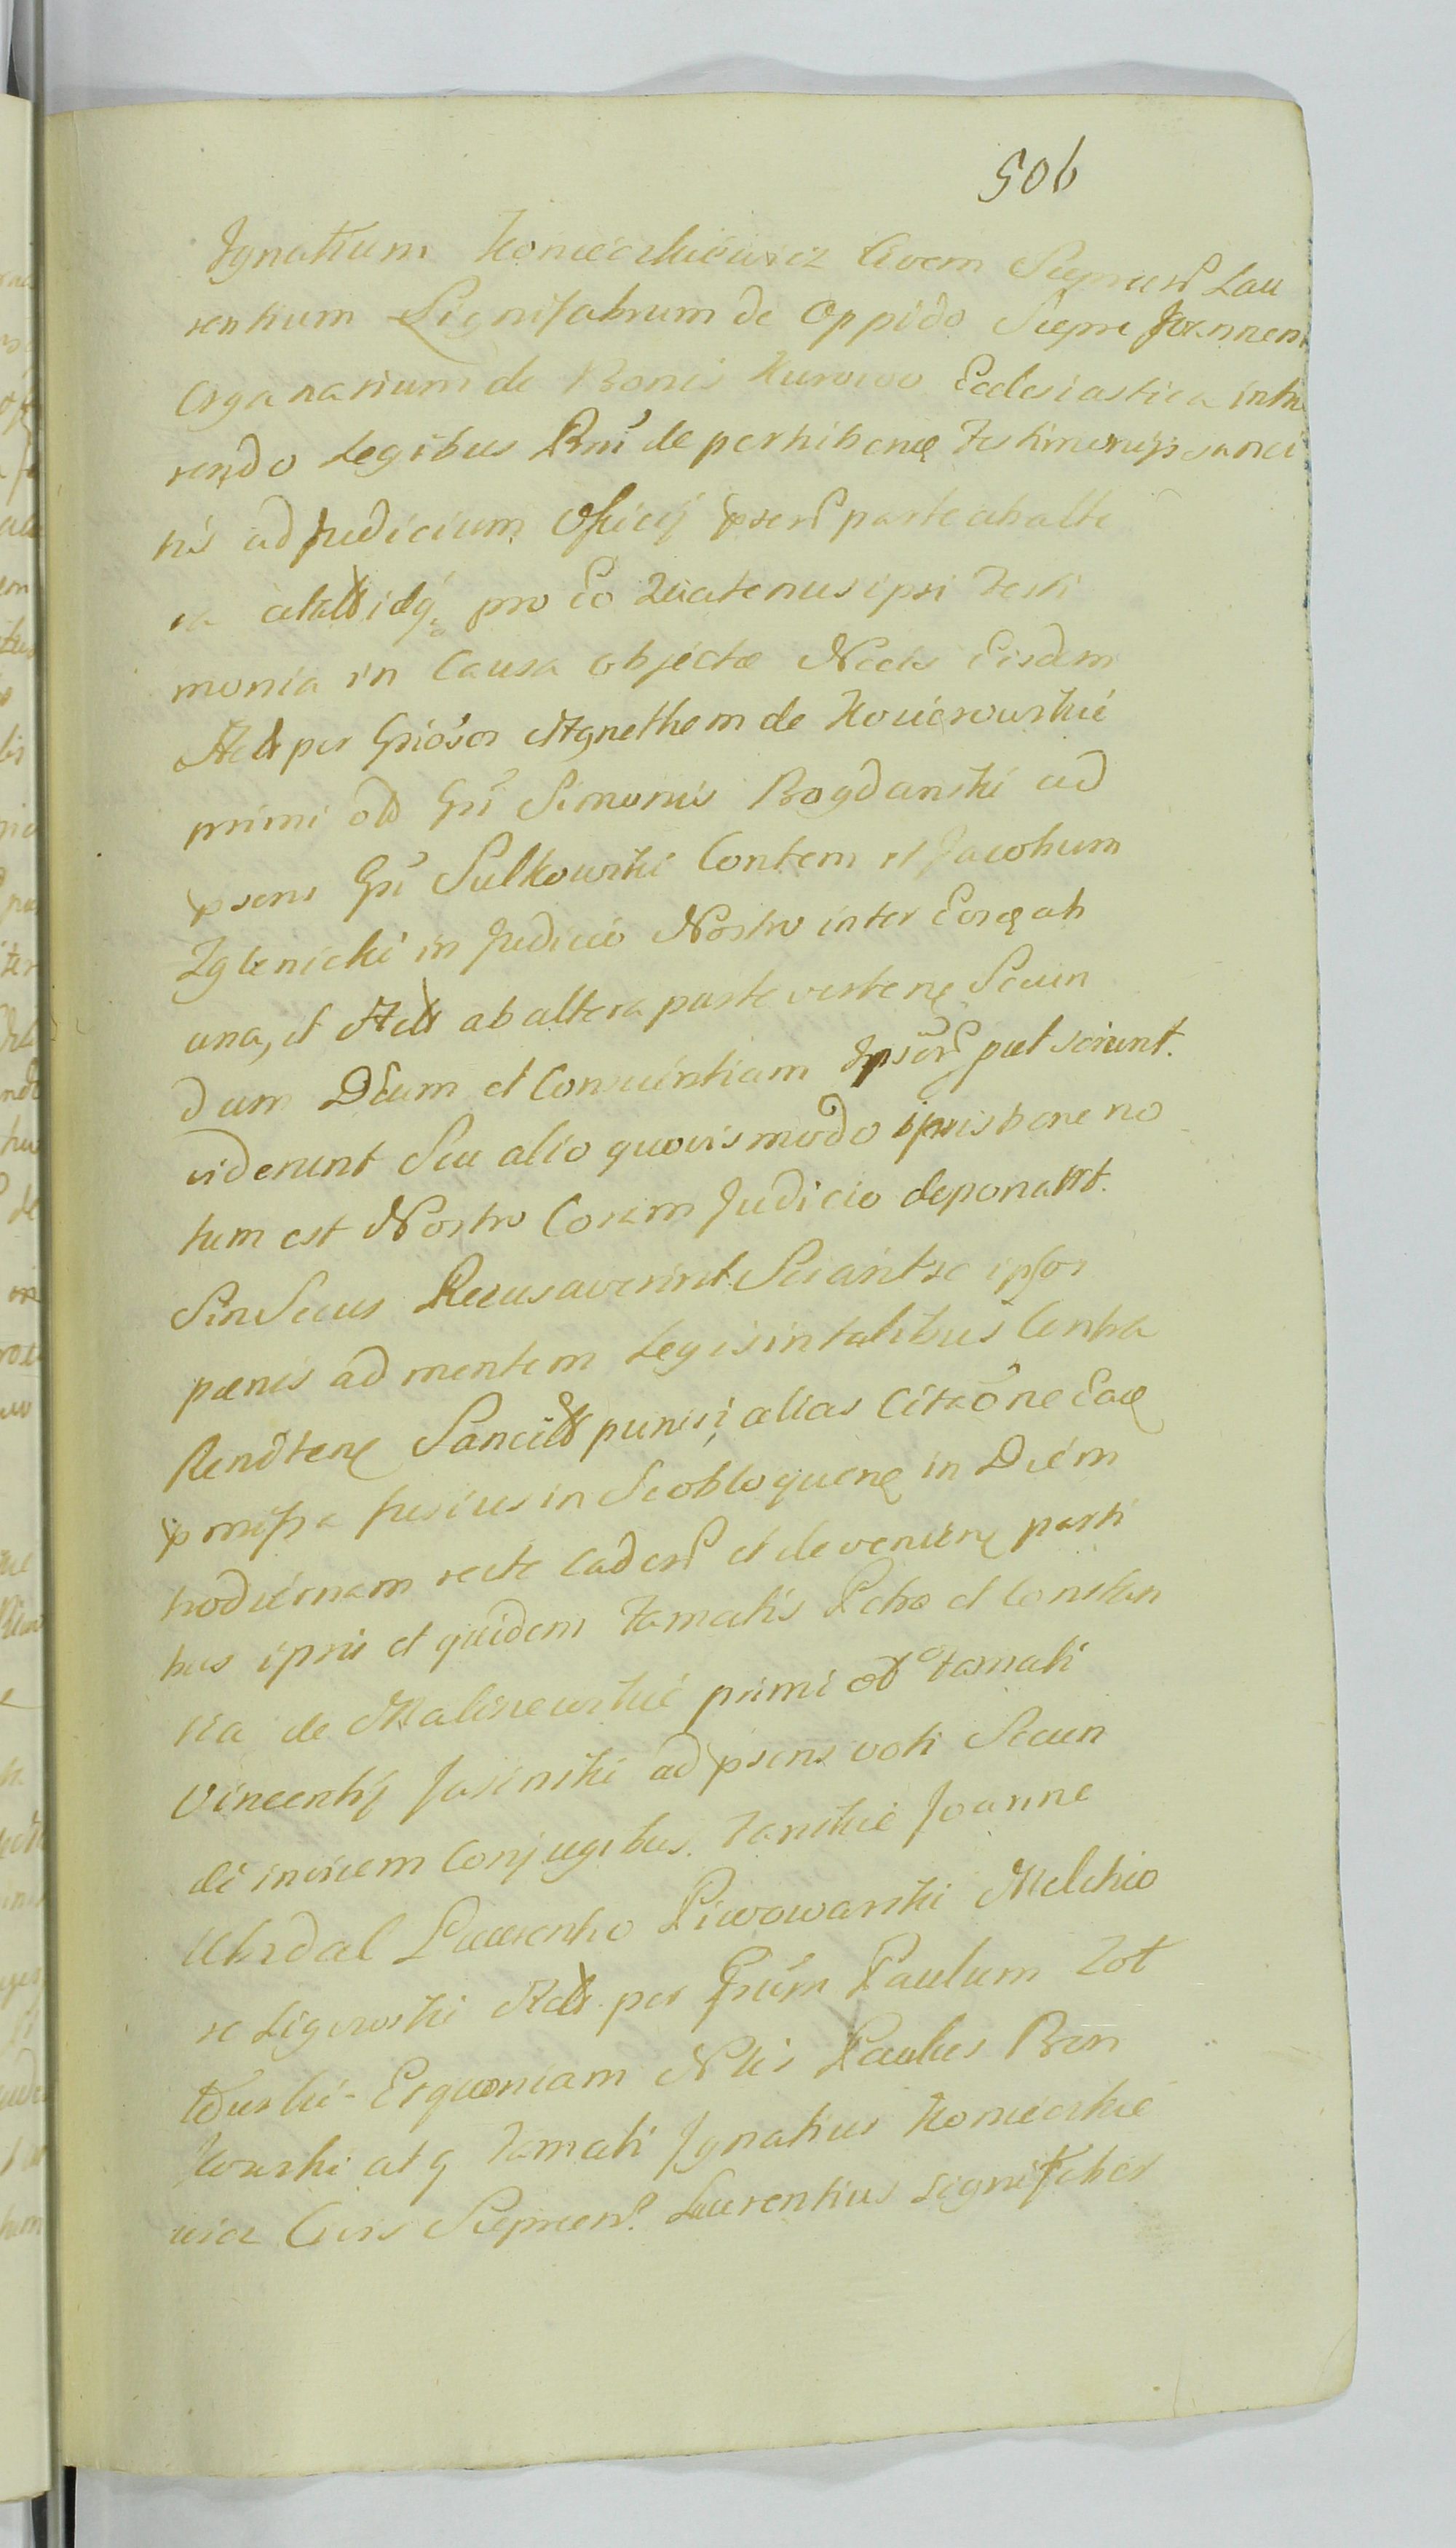 506
Ignatium Koniećzkiéwicz Civem Siepriens Lau
rentium Lignifabrum de Oppido Siepre Joannem
Organarium de Bonis Kurowo Ecclesiastica inhæ
rendo Legibus Rni de perhibenę Testimonijs sanci
tis ad Judicium Officij pnsens parte ab alte
ra idq pro Eo Quatenus ipsi Testi
monia in Causa objectæ Nects Eisdem
Acts per Gnosos Agnethem de Kouierowskié
primi oto Gñi Simonis Bogdanski ad
psens Gñi Sulkowski Contem et Jacobum
Zglenicki in Judicio Nostro inter Eosq ab
una, et Acts ab altera parte vertenę Secun
dum Deum et Conscientiam Ipsor put sciunt.
viderunt Seu alio quovis modo ipsis bene no
tum est Nostro Coram Judicio deponant.
Sin Secus Recusaverint Sciant se ipsos
pænis ad mentem Legis in talibus Contra
Rendtenę Sancits puniri, alias Citaône Eaq
pmissa fusius in Se obloquenę in Diém
hodiérnam recte Cadens et devenienę parti
bus ipsis et quidem Famatis Petro et Constan
tia de Malinewskié primi oto Famati
Vincentij Jasinski ad psens voti Secun
di invicem Conjugibus. Tandié Joanne
Laurentio Piwowarski Melchio
re Ligowski Acts per Gnûm Paulum Zot
towski Et quoniam Nlis Paulus Ben
kowski atq Famati Ignatius Koniećzkié
wicz Civis Siepriens. Laurentius Lignifaber